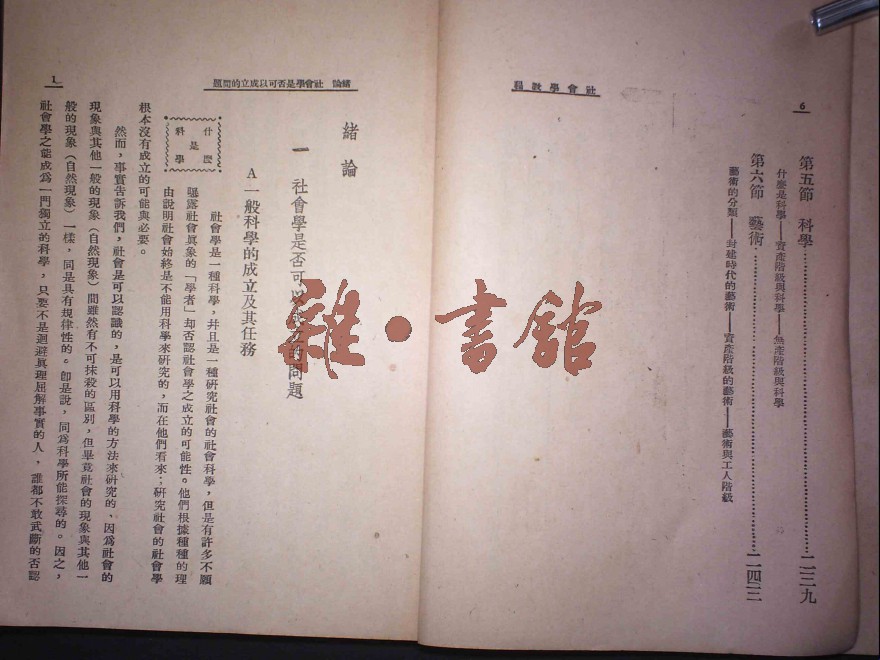 6
社會學教程
第五節 科學……二三九
什麼是科學——資產階級與科學——無產階級與科學
第六節 藝術……二四三
藝術的分類——封建時代的藝術——資產階級的藝術——藝術與工人階級
1
緒論 社會學是否可以成立的問題
緒論
一 社會學是否可以成立的問題
A 一般科學的成立及其任務
什麼
是
科學
社會學是一種科學，幷且是一種硏究社會的社會科學，但是有許多不願
曝露社會眞象的「學者」却否認社會學之成立的可能性。他們根據種種的理
由說明社會始終是不能用科學來硏究的，而在他們看來；硏究社會的社會學
根本沒有成立的可能與必要。
然而，事實吿訴我們，社會是可以認識的，是可以用科學的方法來硏究的、因爲社會的
現象與其他一般的現象（自然現象）間雖然有不可抹殺的區別，但畢竟社會的現象與其他一
般的現象（自然現象）一樣，同是具有規律性的。卽是說，同爲科學所能探尋的。因之，
社會學之能成爲一門獨立的科學，只要不是迴避眞理屈解事實的人，誰都不敢武斷的否認
雜·書館